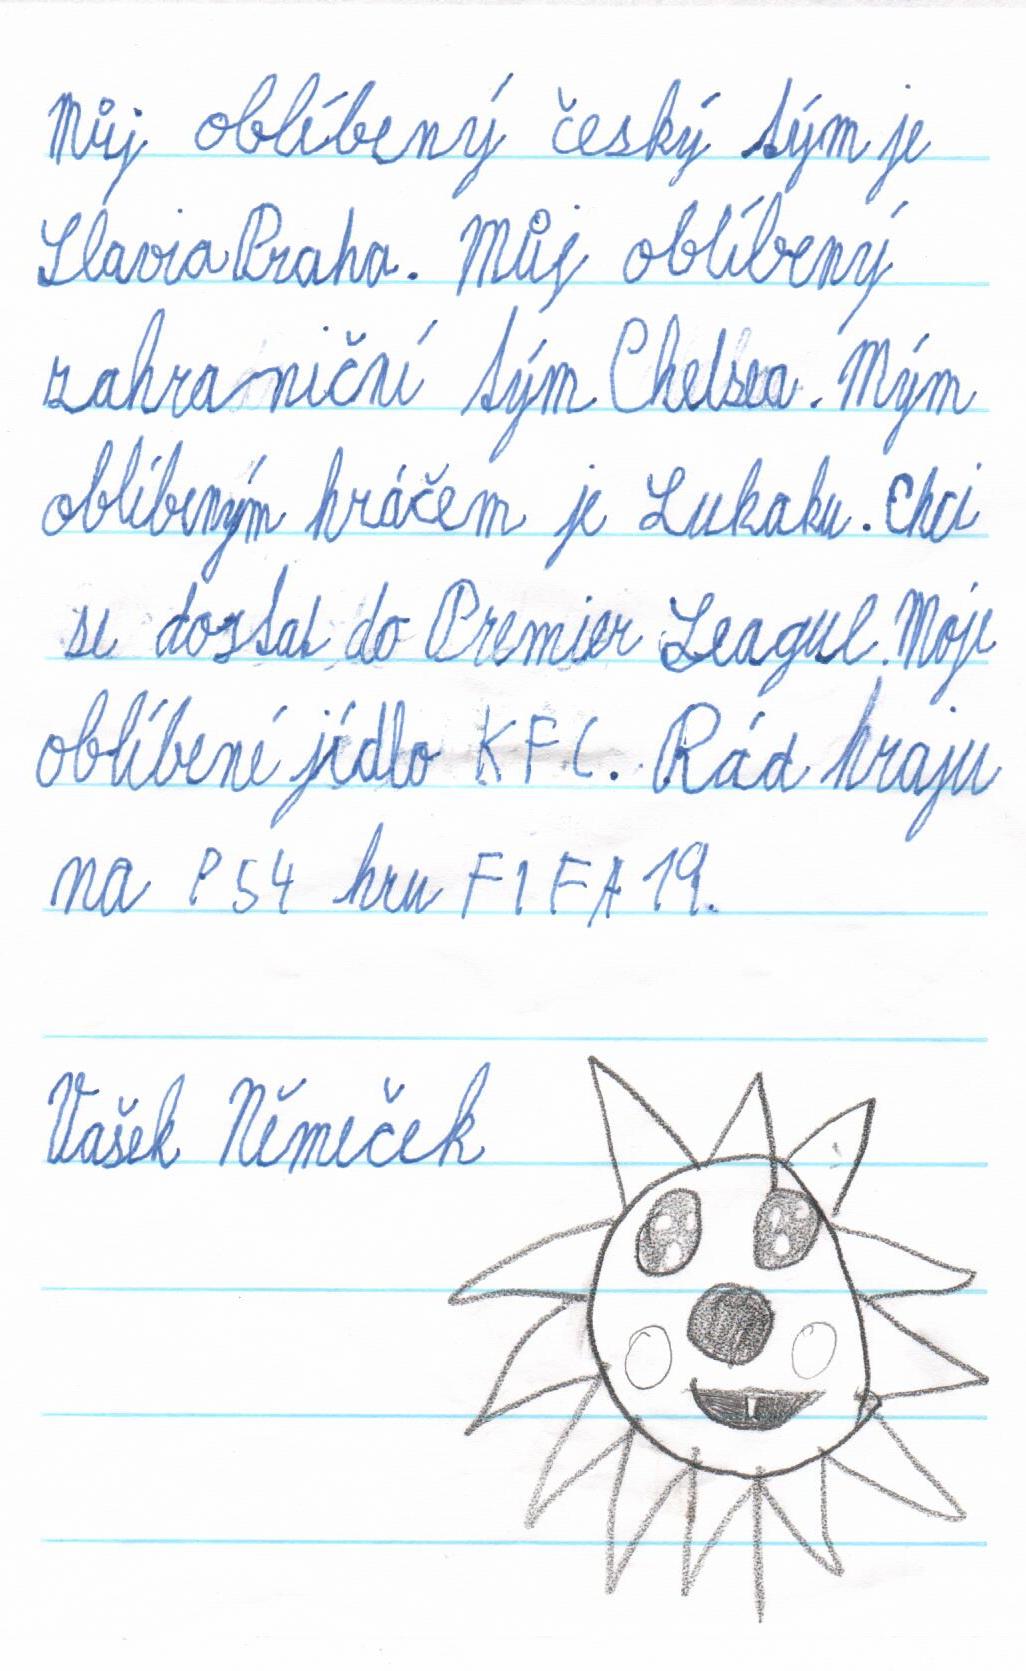 Můj oblíbený český tým je
Slavia Praha. Můj oblíbený
zahraniční tým Chelsea. Mým
oblíbeným hráčem je Lukaku. Chci
se dostat do Premier League. Moje
oblíbené jídlo KFC. Rád hraju
na PS4 hru FIFA 19.
Vašek Němeček